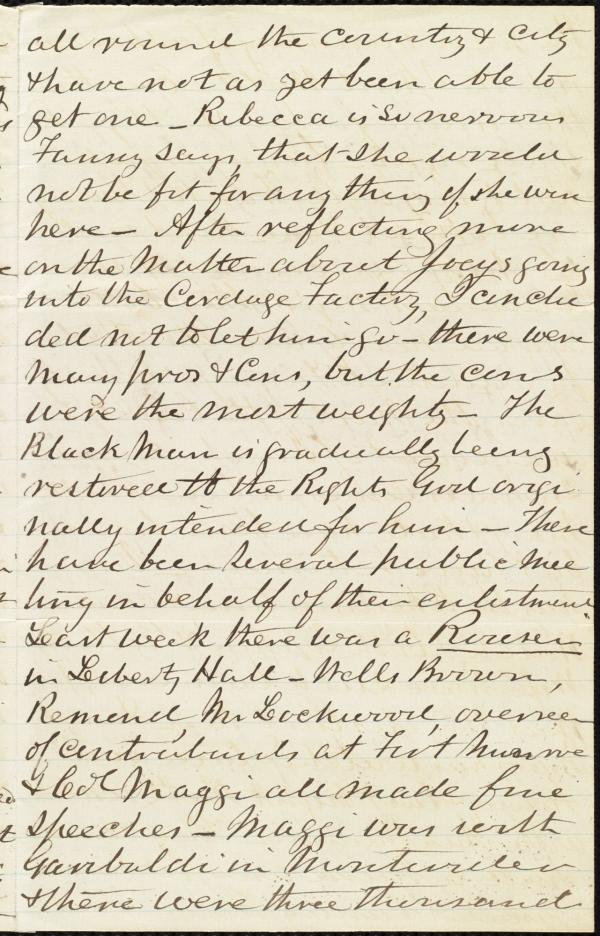 all round the country & City
& have not as yet been able to
get one – Rebecca is so nervous
Fanny says, that she would
not be fit for any thing if she were
here – After reflecting more
on the Matter about Joeys going
into the Cordage Factory, I conclu
ded not to let him go – there were
many pros & Cons, but the cons
were the most weighty – The
Black Man is gradually being
restored to the Rights God origi
nally intended for him – There
have been several public mee
ting in behalf of their enlistment
Last week there was a Rouser
in Liberty Hall – Wells Brown,
Remond, Mr Lockwood, overseer
of contrabands at Fort Munroe
& Col Maggi all made fine
speeches – Maggi was with
Garibaldi in Montevideo
& there were three thousand